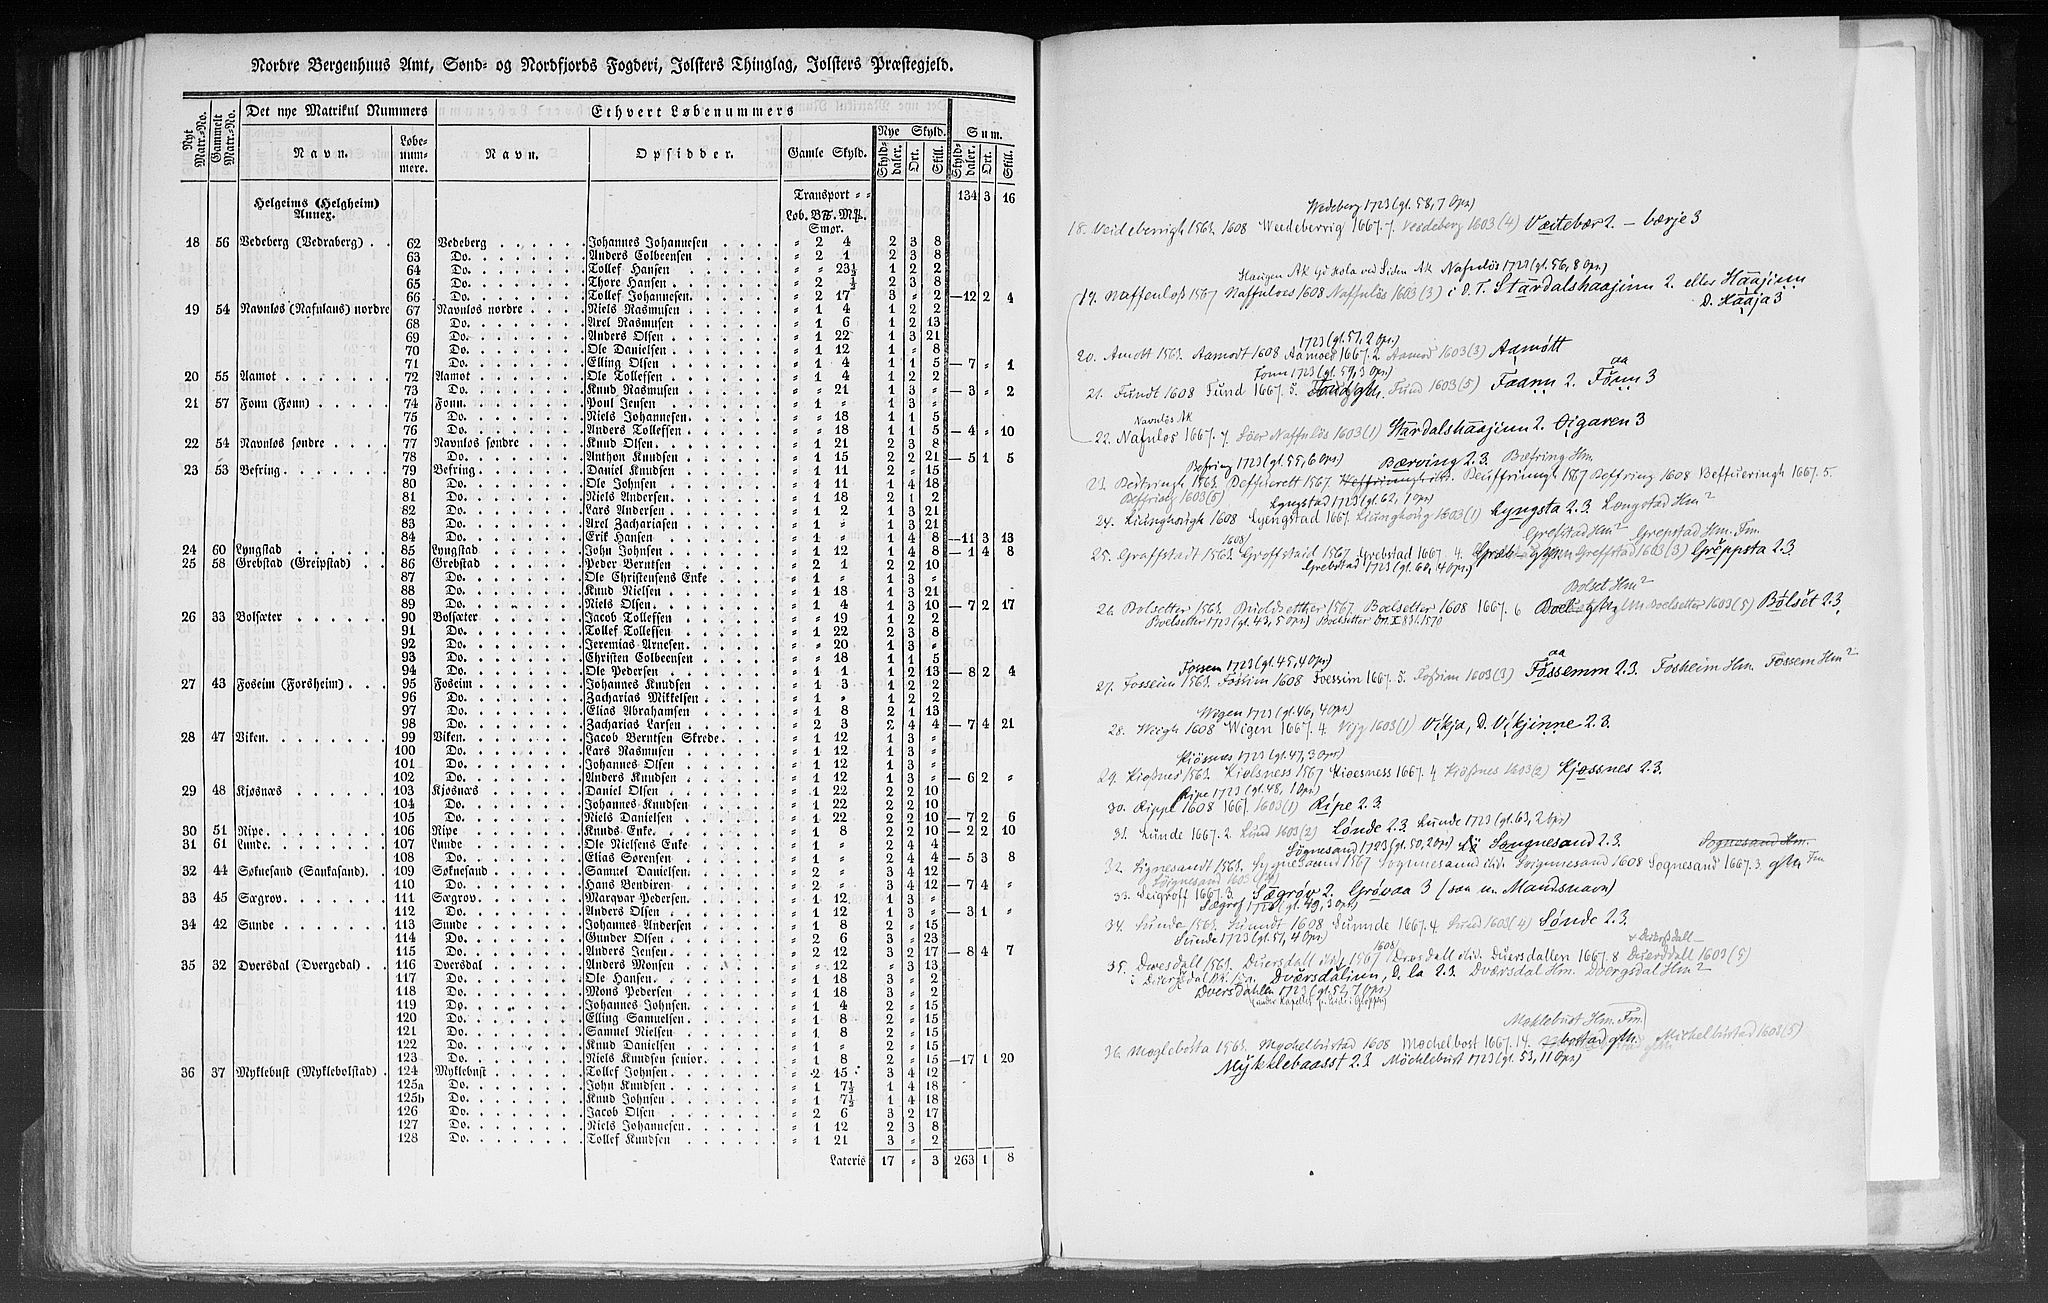 Nordre Bergenhuus Amt, Sønd- og Nordfjords Fogderi, Jølsters Thinglag, Jølsters Præstegjeld.
Nyt Matr.-No. Gammelt Matr.-No. Det nye Matrikul Nummers Navn. Løbe-num-mere. Ethvert Løbenummers Navn. Opsidder. Gamle Skyld. Nye Skyld. Skyld-daler. Ort. Skill. Sum. Skyld-daler. Ort. Skill.
Transport = = 134 3 16
Helgeims (Helgheim) Annex. Løb. B℔. M℔. Smør.
18 56 Vedeberg (Vedraberg) . . 62 Vedeberg Johannes Johannesen = 2 4 2 3 8
63 Do. Anders Colbeensen = 2 1 2 3 8
64 Do. Tollef Hansen = = 23½ 1 2 2
65 Do. Thore Hansen = 2 ½ 2 3 8
66 Do. Tollef Johannesen = 2 17 3 = 2 —12 2 4
19 54 Navnløs (Nafnlaus) nordre 67 Navnløs nordre Niels Rasmusen = 1 4 1 2 2
68 Do. Axel Rasmusen = 1 6 1 2 13
69 Do. Anders Olsen = 1 22 1 3 21
70 Do. Ole Danielsen = 1 12 1 = 8
71 Do. Elling Olsen = 1 4 1 1 5 —7 = 1
20 55 Aamot 72 Aamot Ole Tollefsen = 1 4 1 2 2
73 Do. Knud Rasmusen = = 21 1 3 = —3 = 2
21 57 Fonn (Fønn) 74 Fonn Poul Jensen = 1 = 1 3 =
75 Do. Niels Johannesen = = 18 1 1 5
76 Do. Anders Tollefsen = = 18 1 1 5 —4 = 10
22 54 Navnløs søndre 77 Navnløs søndre Knud Olsen = 1 21 2 3 8
78 Do. Anthon Knudsen = 1 15 2 2 21 —5 1 5
23 53 Befring 79 Befring Daniel Knudsen = 1 11 2 = 15
80 Do. Ole Johnsen = 1 11 1 4 18
81 Do. Niels Andersen = 1 18 2 1 2
82 Do. Lars Andersen = 1 2 1 3 21
83 Do. Axel Zachariasen = 1 = 1 3 21
84 Do. Erik Hansen = 1 = 1 4 8 —11 3 13
24 60 Lyngstad 85 Lyngstad John Johnsen = 1 12 1 4 8 —1 4 8
25 58 Grebstad (Greipstad) . . 86 Grebstad Peder Berntsen = 2 1 2 2 10
87 Do. Ole Christensens Enke = 1 = 1 3 =
88 Do. Knud Nielsen = 1 18 1 3 21
89 Do. Niels Olsen = 1 4 1 3 10 —7 2 17
26 33 Bolsæter 90 Bolsæter Jacob Tollefsen = = 19 1 2 2
91 Do. Tollef Tollefsen = 1 22 2 3 8
92 Do. Jeremias Arnesen = = 20 1 3 =
93 Do. Christen Colbeensen = = 18 1 1 5
94 Do. Ole Pedersen = 1 1 1 2 13 —8 2 4
27 43 Foseim (Forsheim) 95 Foseim Johannes Knudsen = 1 3 1 2 2
96 Do. Zacharias Mikkelsen = 1 = 1 2 2
97 Do. Elias Abrahamsen = 1 8 2 1 13
98 Do. Zacharias Larsen = 2 3 2 4 4 —7 4 21
28 47 Viken 99 Viken Jacob Berntsen Skrede = 1 12 1 3 =
100 Do. Lars Rasmusen = 1 12 1 3 =
101 Do. Johannes Olsen = 1 12 1 3 =
102 Do. Anders Knudsen = 1 12 1 3 = —6 2 =
29 48 Kjøsnæs 103 Kjøsnæs Daniel Olsen = 1 22 2 2 10
104 Do. Johannes Knudsen = 1 22 2 2 10
105 Do. Niels Danielsen = 1 22 2 2 10 —7 2 6
30 51 Ripe 106 Ripe Knuds Enke = 1 8 2 2 10 —2 2 10
31 61 Lunde 107 Lunde Ole Nielsens Enke = 2 = 2 4 4
108 Do. Elias Sørensen = 2 = 2 4 4 —5 3 8
32 44 Søknesand (Sankasand) 109 Søknesand Samuel Danielsen = 2 = 3 4 12
110 Do. Hans Bendixen = 2 = 3 4 12 —7 4 =
33 45 Sægrov 111 Sægrov Marqvar Pedersen = 1 12 1 3 =
112 Do. Anders Olsen = 1 12 1 3 = —3 1 =
34 42 Sunde 113 Sunde Johannes Andersen = 1 8 2 = 15
114 Do. Gunder Olsen = 2 6 3 = 23
115 Do. Anders Jensen = 2 12 3 2 17 —8 4 7
35 32 Dversdal (Dvergedal) . . 116 Dversdal Anders Monsen = = 12 = 3 13
117 Do. Ole Hansen = 1 18 3 = 2
118 Do. Mons Pedersen = 1 18 3 = 2
119 Do. Johannes Johnsen = 1 4 2 = 15
120 Do. Elling Samuelsen = 1 8 2 = 15
121 Do. Samuel Nielsen = 1 8 2 = 15
122 Do. Knud Danielsen = 1 = 2 = 15
123 Do. Niels Knudsen senior = 1 8 2 = 15 —17 1 20
36 37 Myklebust (Myklebolstad) . 124 Myklebust Tollef Johnsen = 2 15 3 4 12
125a Do. John Knudsen = 1 7½ 1 4 18
125b Do. Knud Johnsen = 1 7½ 1 4 18
126 Do. Jacob Olsen = 2 6 3 2 17
127 Do. Niels Johannesen = 1 12 2 3 8
128 Do. Tollef Knudsen = 1 21 3 = 2
Lateris 17 = 3 263 1 8
Wedeberg 1723 (gl. 58, 7 Opn)
18. Veidebenigh 1563. 1608 Weedeberrig 1667. 7. Vesdeberg 1603 (4) Væitebær 2. – bærje 3
Haugen AK Nafnløs 1723 (gl. 56, 8 Opn)
19. Naffenloß 1567 Naffnloes 1608 Naffnløs 1603 (3) i D. T. Stardalshaajinn 2. eller Haajinn
D. Haaja 3
1723 (gl. 57, 2 Opn)
20. Amott 1563. Aamodt 1608 Aamoed 1667. 2 Aamod 1603 (3) Aamøtt
Fonn 1723 (gl. 59, 3 Opn)
21. Fundt 1608 Fund 1667. 5. Fund 1603 (5) Faann 2. Fonn 3
Navnløs AK
22. Nafnløs 1667. 7. Söer Naffnløs 1603 (1) Stardalshaajinn 2. Øigaren 3
Befring 1723 (gl. 55, 6 Opn) Bærving 2.3. Bæfring Hm.
23. 1563. Beffuerett 1567 1567 Beffring 1608 Beffueringh 1667. 5.
Beffring 1603 (5) Lyngstad 1723 (gl. 62, 1 Opn)
24. Liunghough 1608 Lyengstad 1667. Liunghoug 1603 (1) Lyngsta 2.3. Langstad Hm²
Grebstad Hm² Grepstad Hm. Fm.
1608
25. Graffstadt 1563. Groffstaid 1567 Grebstad 1667. 4. Greffstad 1603 (3) Greppsta 2.3.
Grebstad 1723 (gl. 60, 4 Opn)
Bolset Hm²
26. Bolsetter 1563. Buoldsetther 1567. Boelsetter 1608 1667. 6 Boelsetter 1603 (5) Bølsét 2.3.
Boelsetter 1723 (gl. 43, 5 Opn) Boelsetter 1570
Fossem 1723 (gl. 45, 4 Opn)
27. Fosseim 1563. Foshim 1608 Foessim 1667. 5. Foßim 1603 (3) Fossemm 2.3. Fosheim Hm. Fossem Hm²
Wigen 1723 (gl. 46, 4 Opn)
28. Weigh 1608 Wigen 1667. 4 Vig 1603 (1) Vikja, D. Vikjinne 2.3.
Kiössnes 1723 (gl. 47, 3 Opn)
29. Kioßner 1563. Kiolsness 1567 Kioesness 1667. 4 Kiößnes 1603 (2) Kjøssnes 2.3.
Ripe 1723 (gl. 48, 1 Opn)
30. Rippe 1608 1667. 1603 (1) Ripe 2.3.
31. Lunde 1667. 2. Lund 1603 (2) Lønde 2.3. Lunde 1723 (gl. 63, 2 Opn)
Søgnesand 1723 (gl. 50, 2 Opn) Sangnesand 2.3. Sognesand Hm.
32. Signesandt 1563. Sygnesaand 1567 Sognnesannd ibid. Soignnesand 1608 Sognesand 1667. 3. gMn Fm
Søignesand 1603 (2)
33. Seigroff 1667. 3. Sægrøv 2. Grøvaa 3 (son m. Mandsnavn)
Sægrof 1723 (gl. 49, 3 Opn)
34. Sunde 1563. Sundt 1608 Sunnde 1667. 4 Sund 1603 (4) Sønde 2.3.
Sunde 1723 (gl. 51, 4 Opn) 1608 Duerßdall
35. Dwesdall 1563. Duersdall 1567 Dræsdall ibid. Duersdallen 1667. 8 Duerßdall 1603 (5)
Dværsdalinn, D. la 2.3. Dværsdal Hm. Dvergsdal Hm²
Dversdahlen 1723 (gl. 52, 7 Opn)
Myklebust Hm. Fm.
36. Møglebosta 1563. Mychelbustad 1608 Mochelbost 1667. 14. bostad gMn Michelbustad 1603 (5)
Mykklebaasst 2.3. Möchlebust 1723 (gl. 53, 11 Opn)